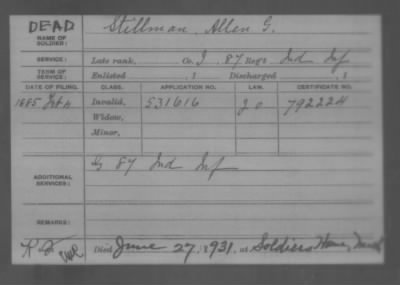 DEAD
NAME OF SOLDIER: Stillman, Allen G.
SERVICE: Late rank, Co. I, 87 Reg't Ind Inf
TERM OF SERVICE: Enlisted , 1 Discharged , 1
DATE OF FILING. CLASS. APPLICATION NO. LAW. CERTIFICATE NO.
1885 Feb 11 Invalid, 531616 792224
Widow,
Minor,
ADDITIONAL SERVICES: G 87 Ind Inf
REMARKS:
Died June 27, 1931, at Soldiers Home,